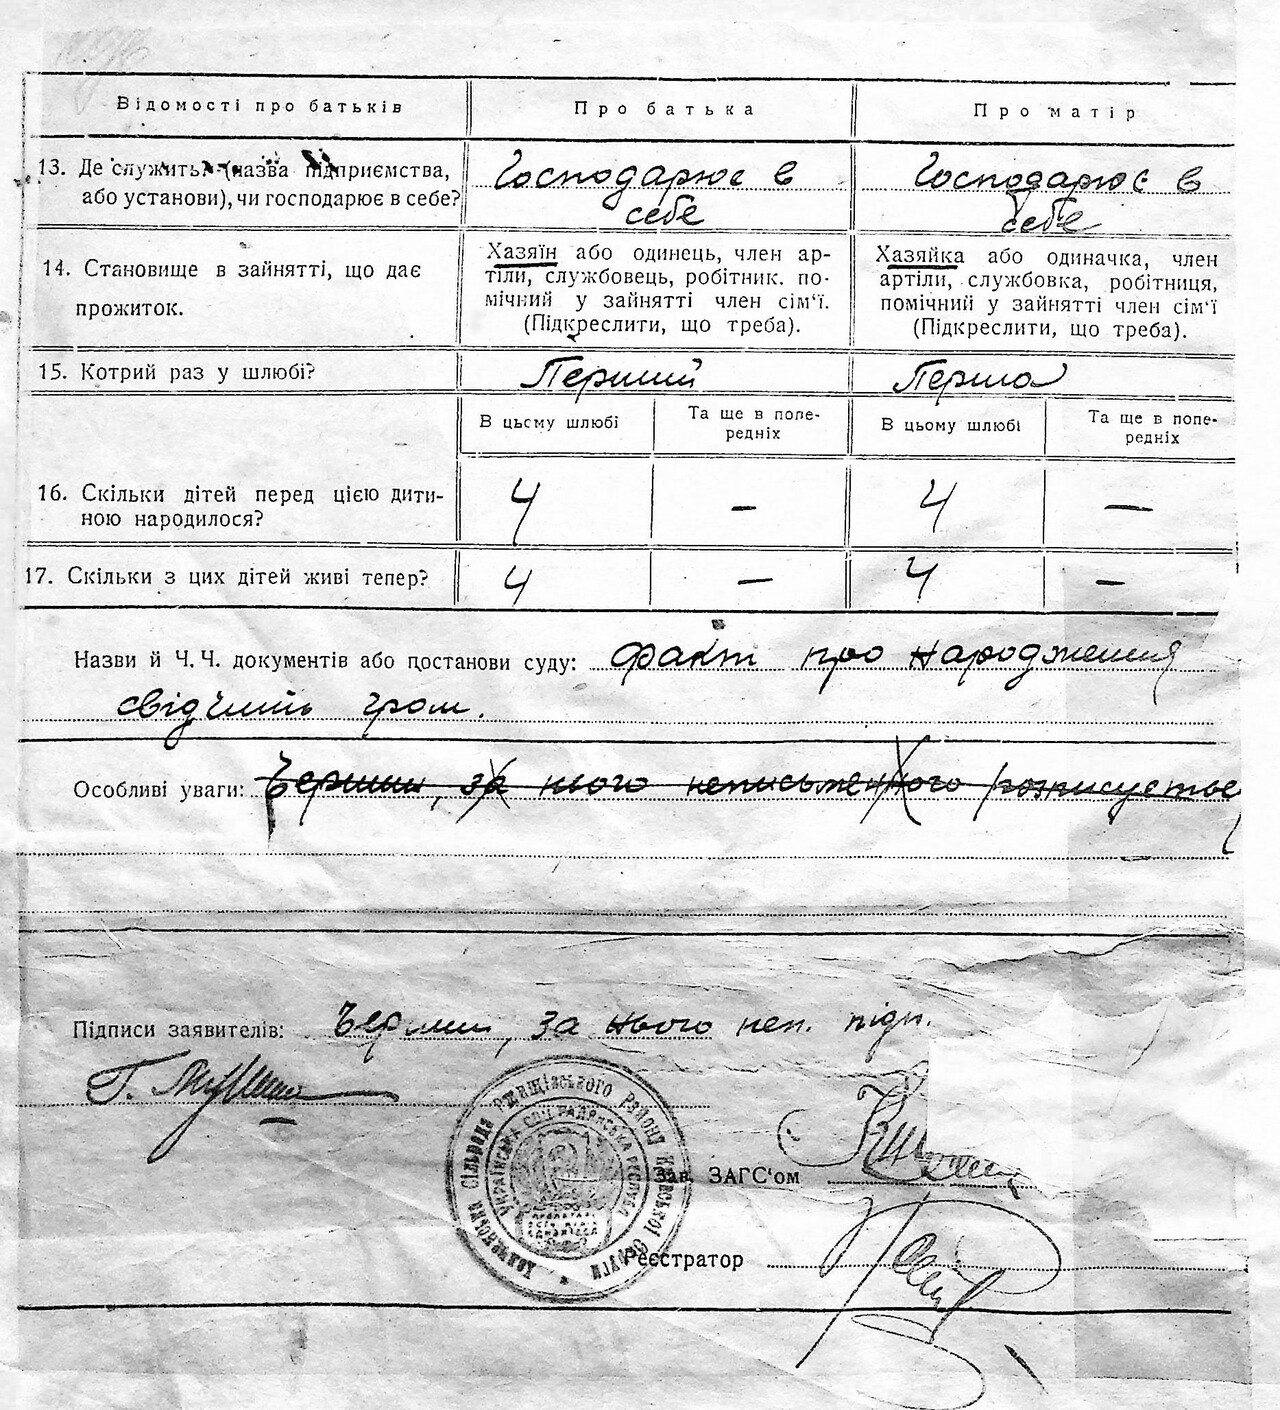 Відомості про батьків
Про батька
Про матір
13. Де служить (назва підприємства,
або установи), чи господарює в себе?
Господарює в
себе
Господарює в
себе
14. Становище в зайнятті, що дає
прожиток.
Хазяїн або одинець, член ар-
тіли, службовець, робітник. по-
мічний у зайнятті член сім'ї.
(Підкреслити, що треба).
Хазяйка або одиначка, член
артіли, службовка, робітниця,
помічний у зайнятті член сім'ї
(Підкреслити, що треба).
15. Котрий раз у шлюбі?
Перший
Перша
В цьому шлюбі
Та ще в попе-
редніх
В цьому шлюбі
Та ще в попе-
редніх
16. Скільки дітей перед цією дити-
ною народилося?
4 – 4 –
17. Скільки з цих дітей живі тепер?
4 – 4 –
Назви й Ч. Ч. документів або постанови суду: факт про народження
свідчить гром.
Особливі уваги: за нього неписьменного розписується
Підписи заявителів: за нього неп. підп.
Сільрада Ржищівського Району Київської Округи
Українська Соц. Радянська Республ
Зав. ЗАГС'ом
Реєстратор